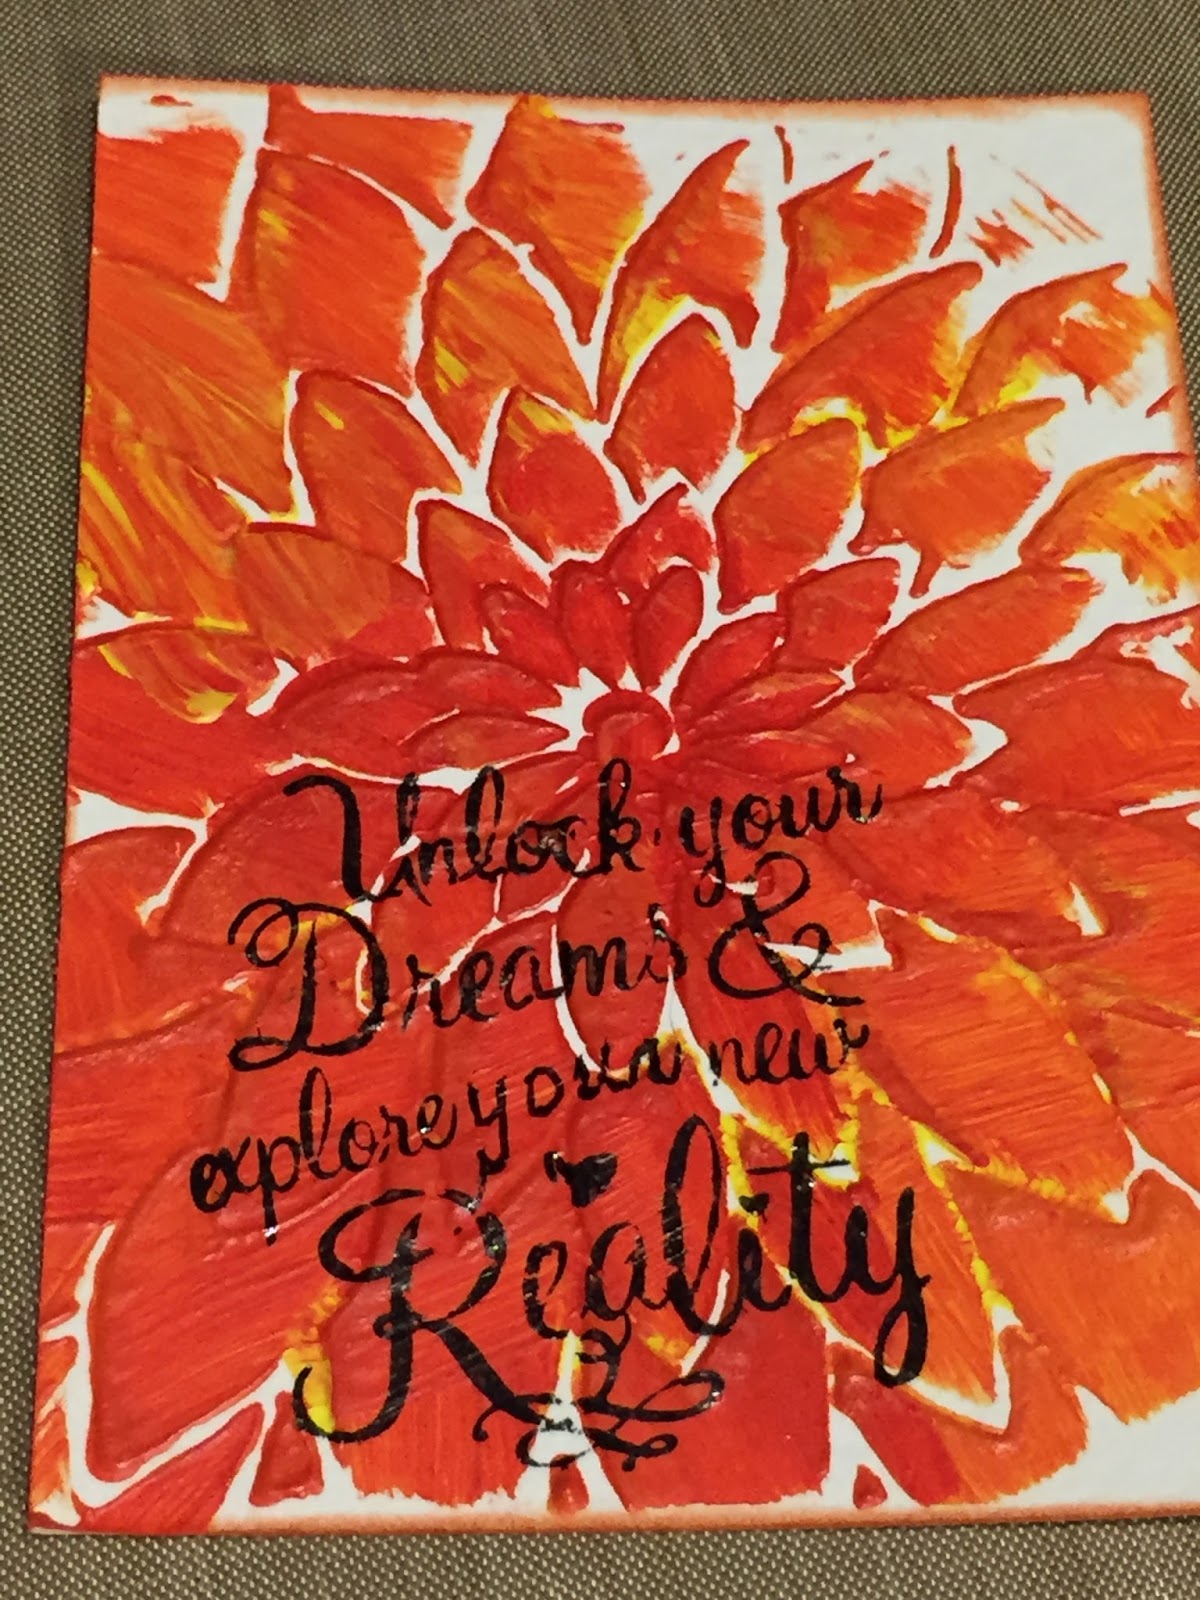 Unlock your
Dreams &
explore your new
Reality